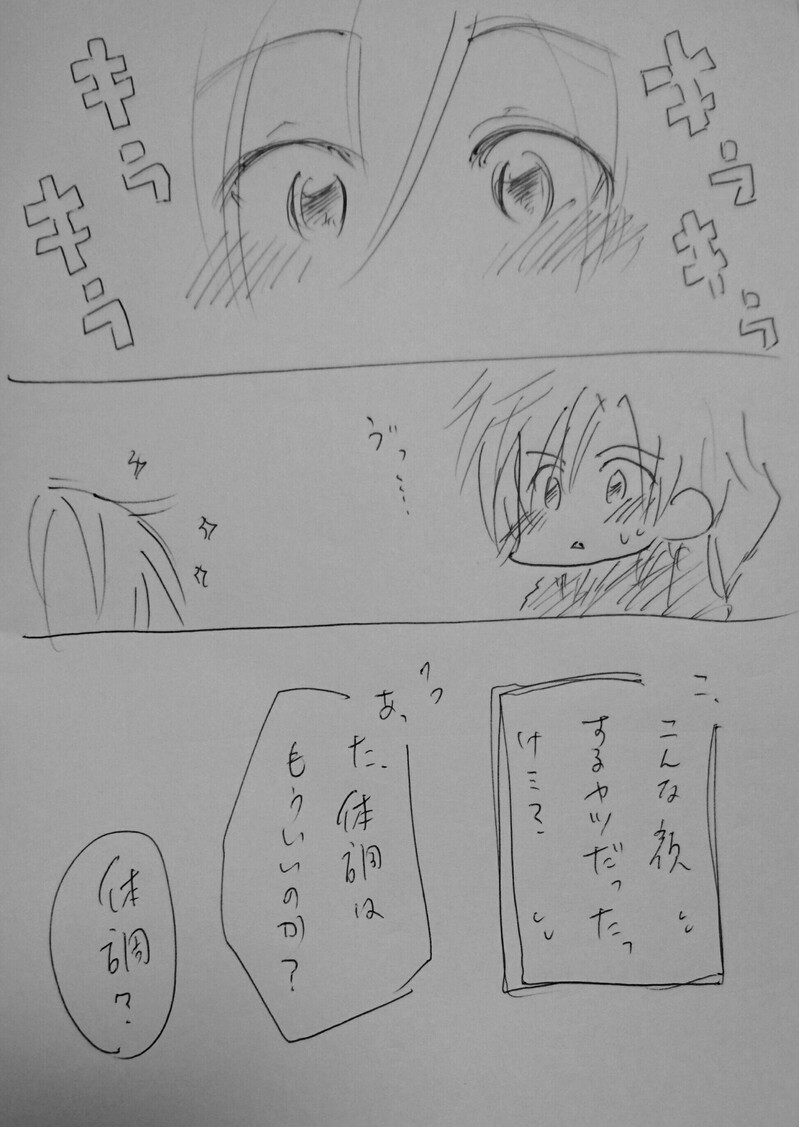 キラ
キラ
キラ
キラ
ゔっ…
こ、
こんな顔
するヤツだったっ
け…？
あっ
た、体調は
もういいのか？
体調？